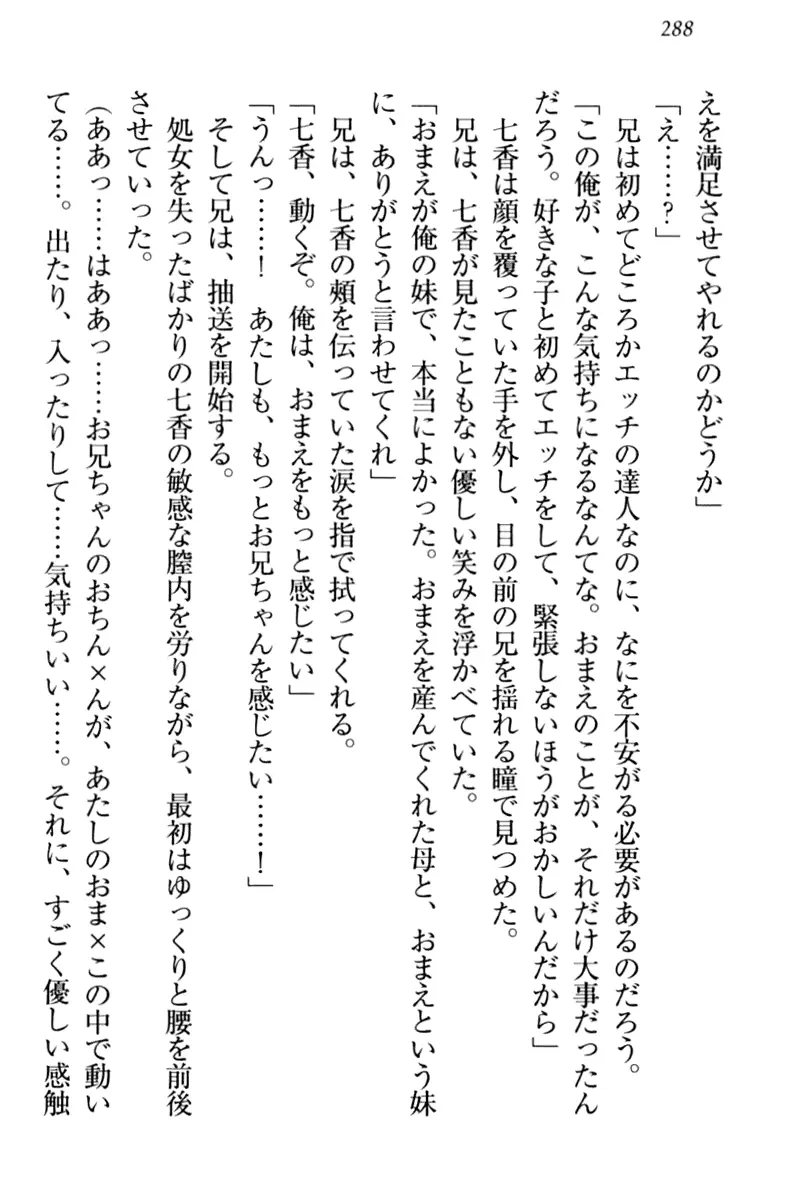 288
えを満足させてやれるのかどうか」
「え……?」
兄は初めてどころかエッチの達人なのに、なにを不安がる必要があるのだろう。
「この俺が、こんな気持ちになるなんてな。おまえのことが、それだけ大事だったん
だろう。好きな子と初めてエッチをして、緊張しないほうがおかしいんだから」
七香は顔を覆っていた手を外し、目の前の兄を揺れる瞳で見つめた。
兄は、七香が見たこともない優しい笑みを浮かべていた。
「おまえが俺の妹で、本当によかった。おまえを産んでくれた母と、おまえという妹
に、ありがとうと言わせてくれ」
兄は、七香の頬を伝っていた涙を指で拭ってくれる。
「七香、動くぞ。俺は、おまえをもっと感じたい」
「うんっ……! あたしも、もっとお兄ちゃんを感じたい……!」
そして兄は、抽送を開始する。
処女を失ったばかりの七香の敏感な膣内を労りながら、最初はゆっくりと腰を前後
させていった。
(ああっ……はああっ……お兄ちゃんのおちん×んが、あたしのおま×この中で動い
てる……。出たり、入ったりして……気持ちいい……。それに、すごく優しい感触